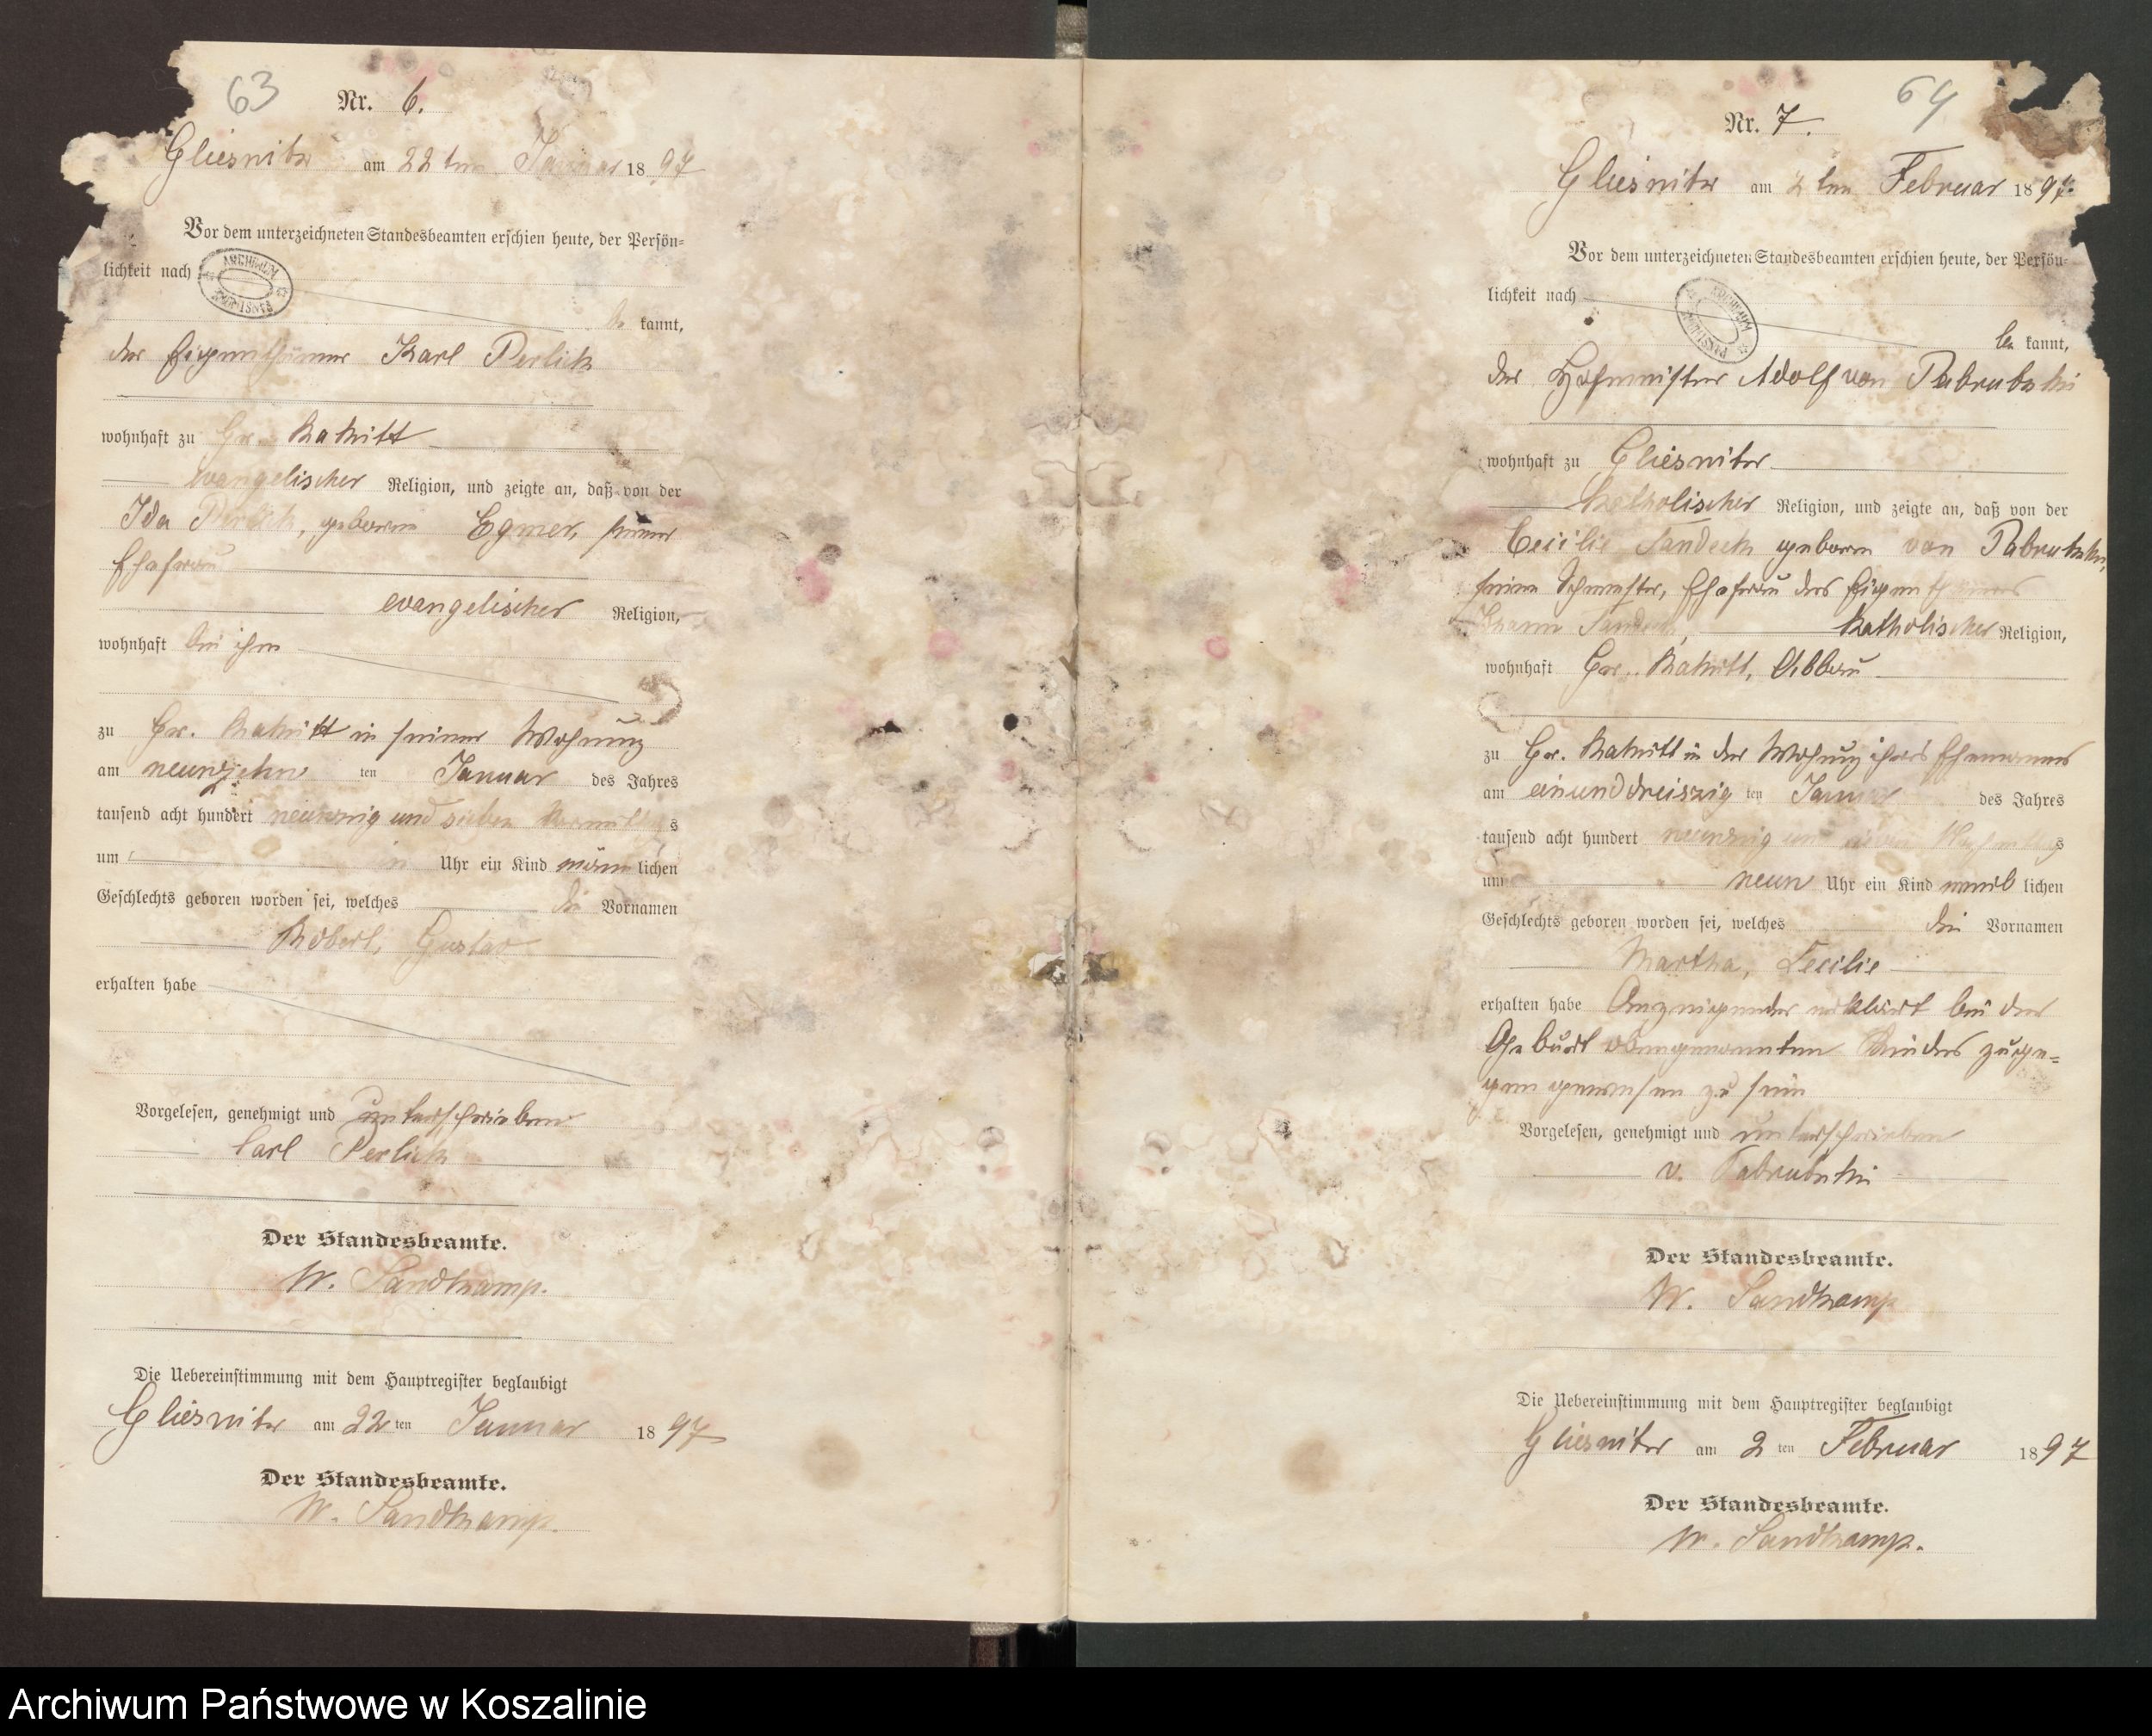 63
Nr. 6.
Gliesnitz am 22ten Januar 1897
Vor dem unterzeichneten Standesbeamten erschien heute, der Persön-
lichkeit nach
ARCHIWUM
kannt,
der Eigenthümer Karl Perlick
wohnhaft zu Gr. Rakitt
evangelischer Religion, und zeigte an, daß von der
Ida Perlick, geborene seiner
Ehefrau
evangelischer Religion,
wohnhaft bei ihm
zu Gr. Rakitt in seiner Wohnung
am neunzehn ten Januar des Jahres
tausend acht hundert neunzig und sieben Vormittags
um Uhr ein Kind männlichen
Geschlechts geboren worden sei, welches die Vornamen
Robert, Gustav
erhalten habe
Vorgelesen, genehmigt und unterschrieben
Carl Perlick
Der Standesbeamte.
W. Sandkamp.
Die Uebereinstimmung mit dem Hauptregister beglaubigt
Gliesnitz am 22ten Januar 1897
Der Standesbeamte.
W. Sandkamp.
64
Nr. 7.
Gliesnitz am 2ten Februar 1897.
Vor dem unterzeichneten Standesbeamten erschien heute, der Persön-
lichkeit nach
be kannt,
der Hofmeister Adolf von Pabrutzki
wohnhaft zu Gliesnitz
katholischer Religion, und zeigte an, daß von der
Cecilie Sandeck geborene von Pabrutzki,
seine Schwester, Ehefrau des Eigenthümers
Sandeck, katholischer Religion,
wohnhaft Gr. Rakitt, Abbau
zu Gr. Rakitt in der Wohnung ihres Ehemannes
am einunddreiszig ten Januar des Jahres
tausend acht hundert neunzig und sieben Nachmittags
um neun Uhr ein Kind weiblichen
Geschlechts geboren worden sei, welches die Vornamen
Martha, Cecilie
erhalten habe Anzeigender erklärt bei der
Geburt obengenannten Kindes zuge-
gen gewesen zu sein
Vorgelesen, genehmigt und unterschrieben
v. Pabrutzki
Der Standesbeamte.
W. Sandkamp
Die Uebereinstimmung mit dem Hauptregister beglaubigt
Gliesnitz am 2ten Februar 1897
Der Standesbeamte.
W. Sandkamp.
Archiwum Państwowe w Koszalinie